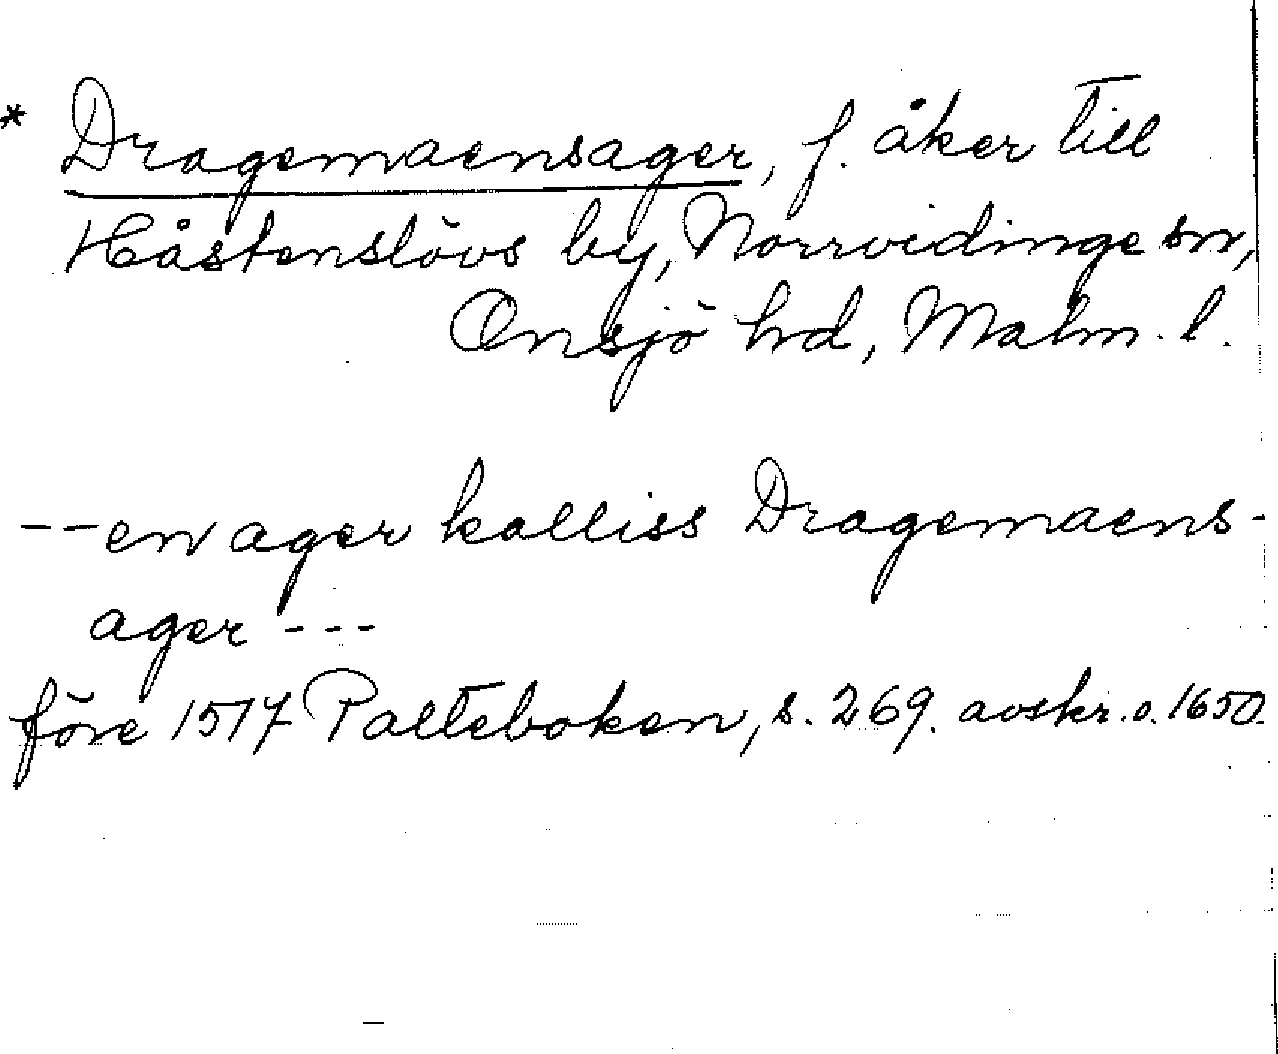 * Dragemaensager, f. åker till
Håstenslövs by, Norrvidinge sn,
Onsjö hd, Malm. l.
--en ager kalliss Dragemaens-
ager ---
före 1517 Palteboken, s. 269. avskr. o. 1650.